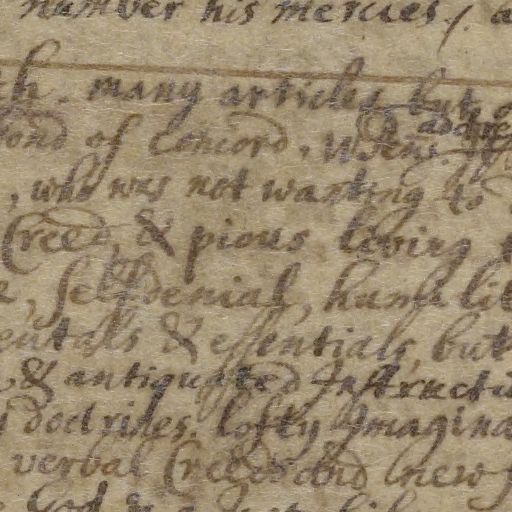 number his mercies. / a
th. many articles but o
ond of Concord. When
, who was not wanting to
Creed, & pious loving
, Selfdenial, humilit
entals & essentials, but
, & antiquated Instructi
doctrines, lofty Imagina
verbal Creeds and new
God &